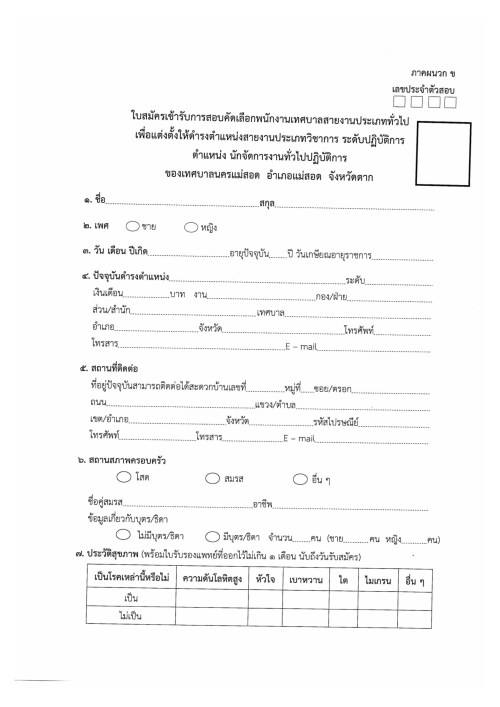 ภาคผนวก ข
เลขประจำตัวสอบ
ใบสมัครเข้ารับการสอบคัดเลือกพนักงานเทศบาลสายงานประเภททั่วไป
เพื่อแต่งตั้งให้ดำรงตำแหน่งสายงานประเภทวิชาการ ระดับปฏิบัติการ
ตำแหน่ง นักจัดการงานทั่วไปปฏิบัติการ
ของเทศบาลนครแม่สอด อำเภอแม่สอด จังหวัดตาก
๑. ชื่อ สกุล
๒. เพศ ชาย หญิง
๓. วัน เดือน ปีเกิด อายุปัจจุบัน ปี วันเกษียณอายุราชการ
๔. ปัจจุบันดำรงตำแหน่ง ระดับ
เงินเดือน บาท งาน กอง/ฝ่าย
ส่วน/สำนัก เทศบาล
อำเภอ จังหวัด โทรศัพท์
โทรสาร E – mail
๕. สถานที่ติดต่อ
ที่อยู่ปัจจุบันสามารถติดต่อได้สะดวกบ้านเลขที่ หมู่ที่ ซอย/ตรอก
ถนน แขวง/ตำบล
เขต/อำเภอ จังหวัด รหัสไปรษณีย์
โทรศัพท์ โทรสาร E – mail
๖. สถานสภาพครอบครัว
โสด สมรส อื่น ๆ
ชื่อคู่สมรส อาชีพ
ข้อมูลเกี่ยวกับบุตร/ธิดา
ไม่มีบุตร/ธิดา มีบุตร/ธิดา จำนวน คน (ชาย คน หญิง คน)
๗. ประวัติสุขภาพ (พร้อมใบรับรองแพทย์ที่ออกไว้ไม่เกิน ๑ เดือน นับถึงวันรับสมัคร)
เป็นโรคเหล่านี้หรือไม่ ความดันโลหิตสูง หัวใจ เบาหวาน ไต ไมเกรน อื่น ๆ
เป็น
ไม่เป็น